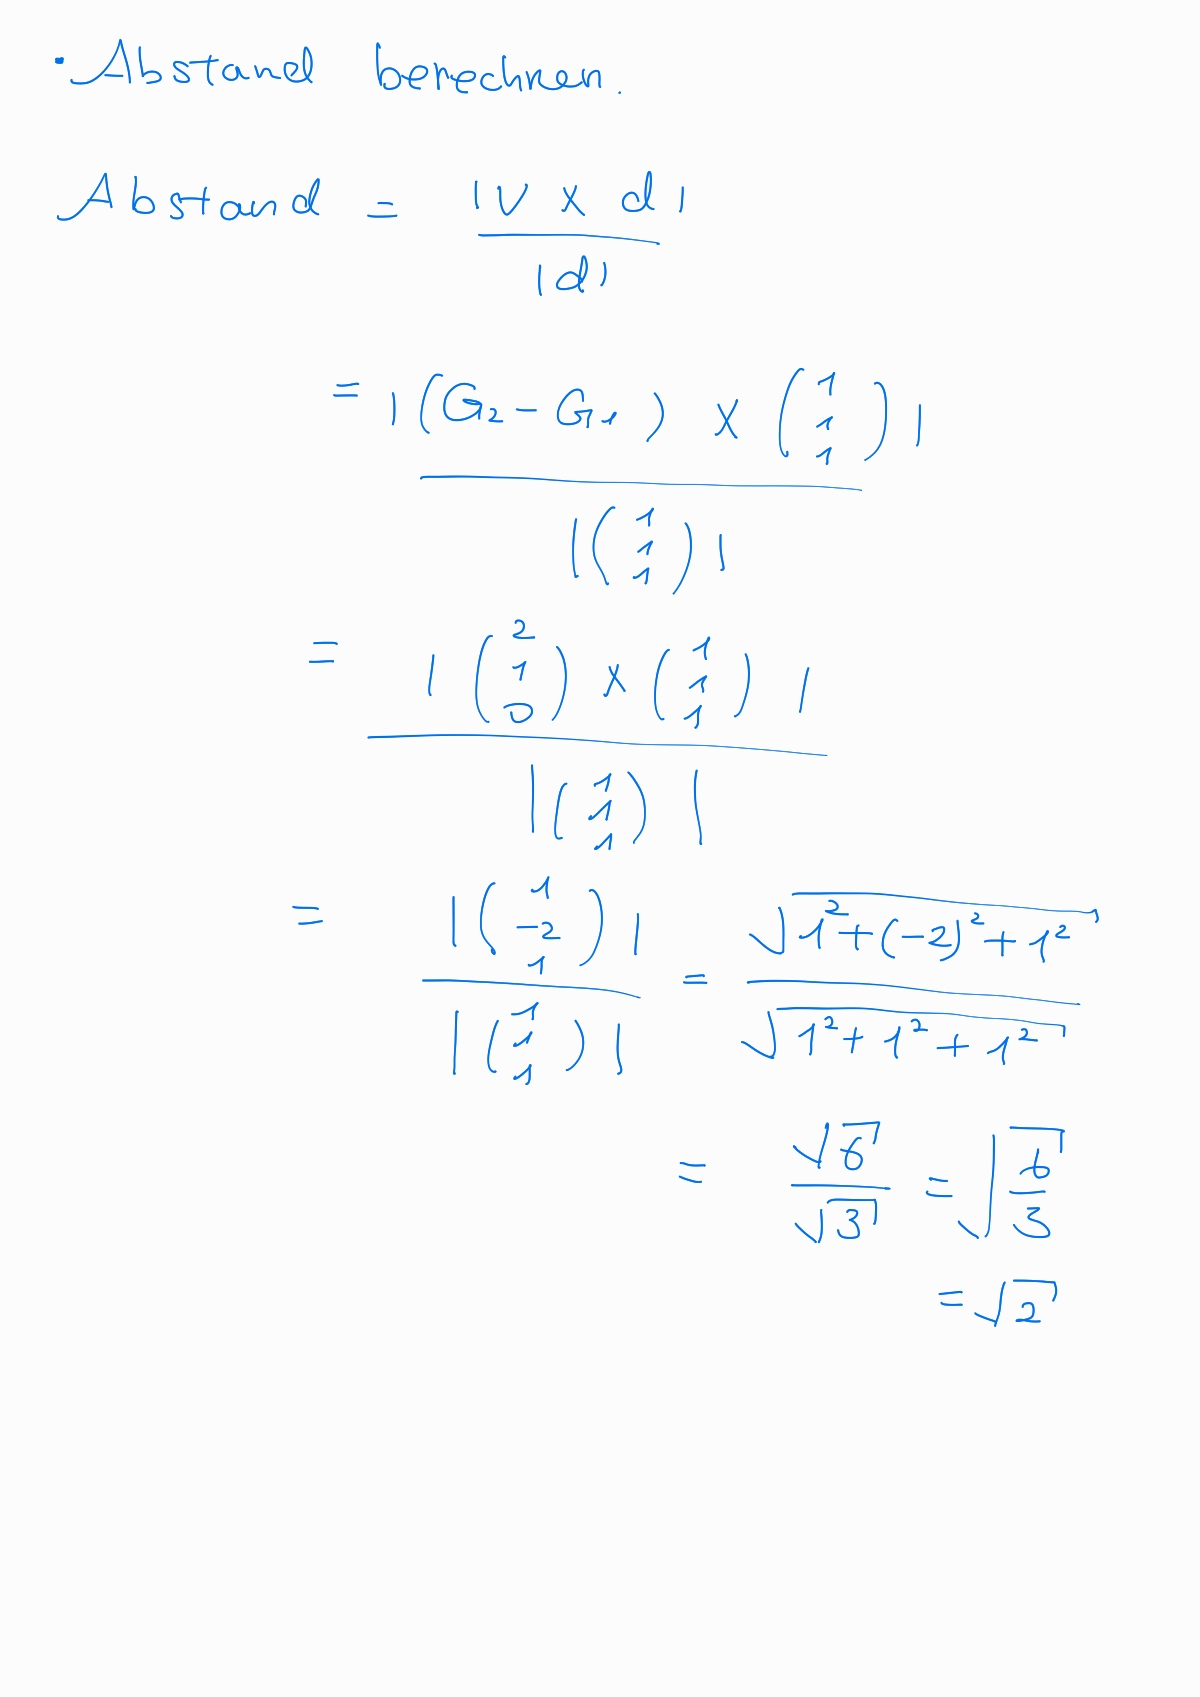 · Abstand berechnen.
Abstand = |v × d| / |d|
= |(G₂ - G₁) × (1 1 1)| / |(1 1 1)|
= |(2 1 0) × (1 1 1)| / |(1 1 1)|
= |(1 -2 1)| / |(1 1 1)| = √(1² + (-2)² + 1²) / √(1² + 1² + 1²)
= √6 / √3 = √(6/3)
= √2